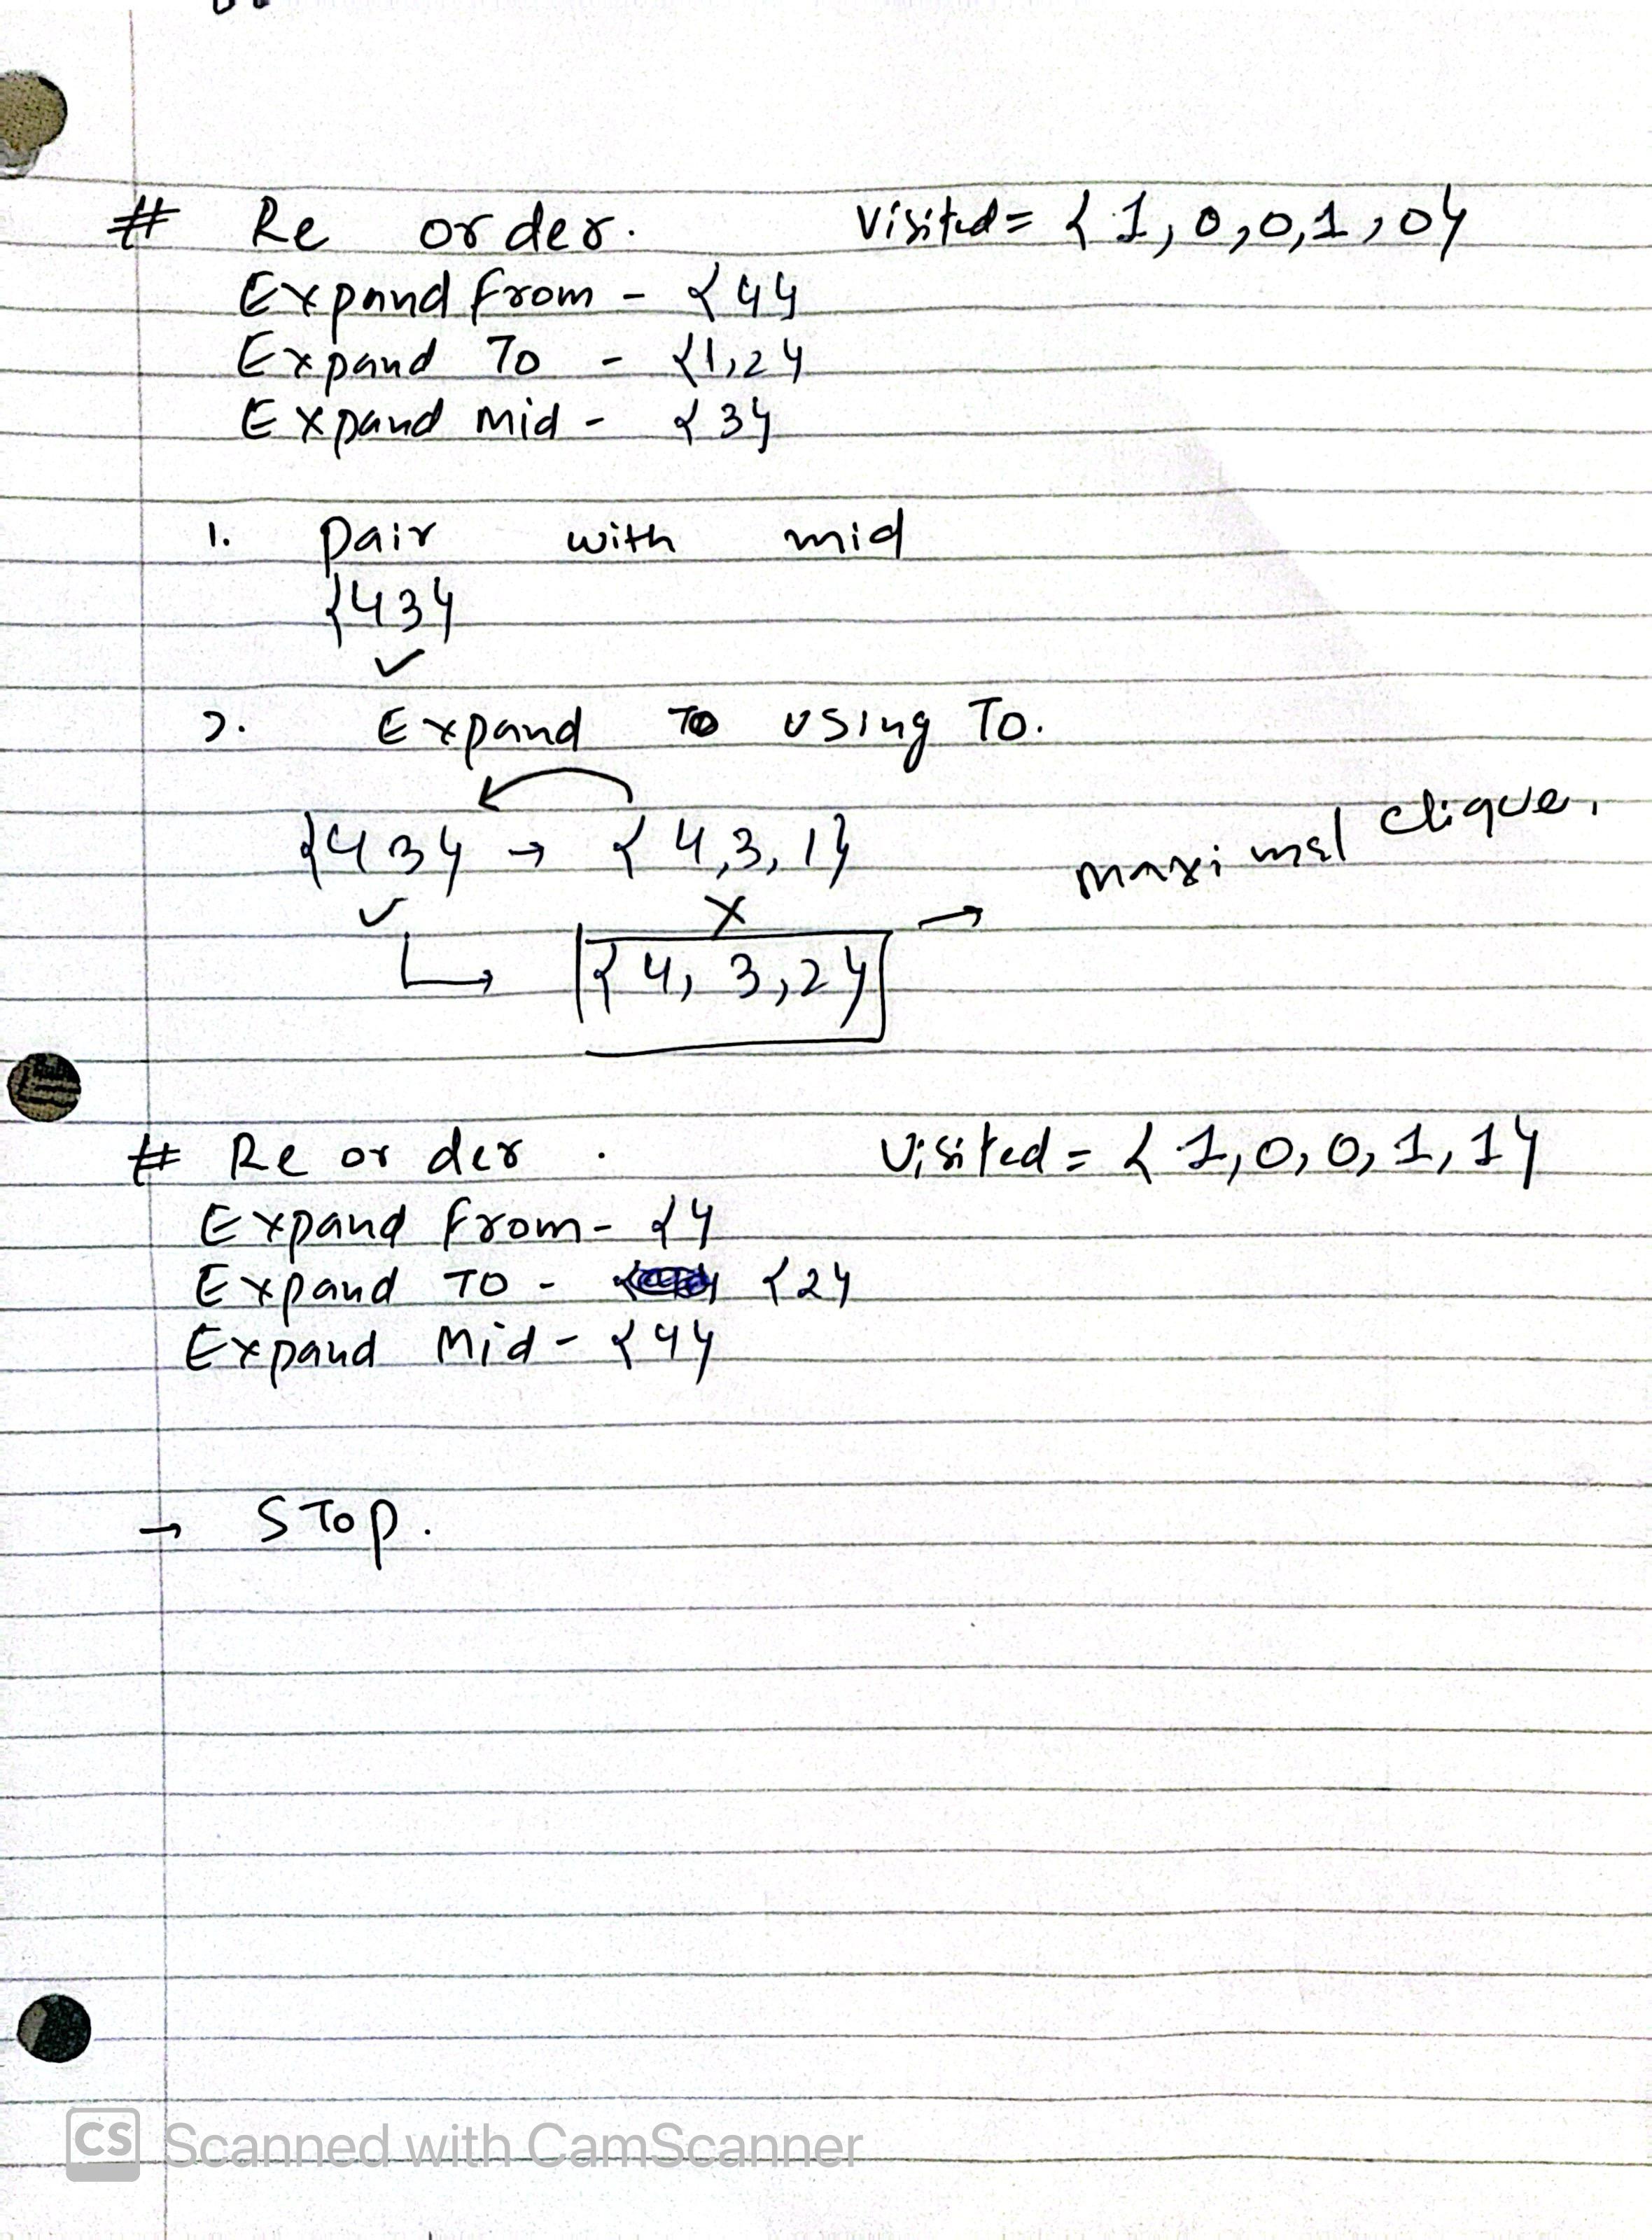 # Re order. Visited = {1, 0, 0, 1, 0}
Expand from - {4}
Expand To - {1,2}
Expand Mid - {3}
1. Pair with mid
{43}
✓
2. Expand To using To.
{43} → {4,3,1} maximal clique.
✓ X →
{4, 3, 2}
# Re order . Visited = {1, 0, 0, 1, 1}
Expand from - {}
Expand TO - {2}
Expand Mid - {4}
→ STOP.
CS Scanned with CamScanner